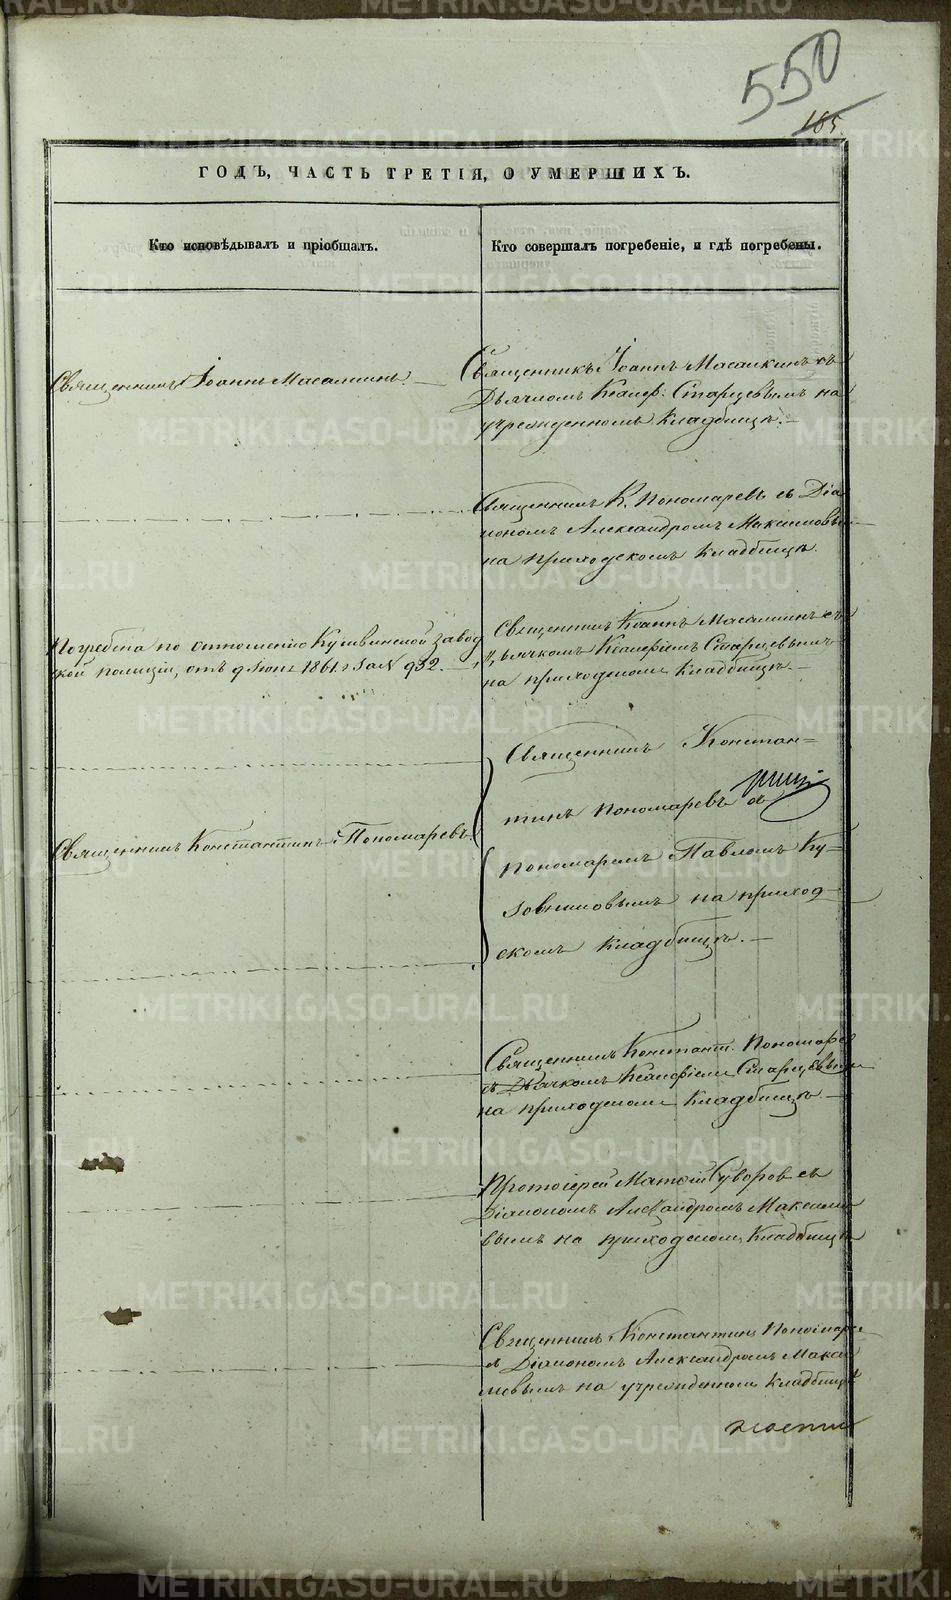 550
165.
ГОДЪ, ЧАСТЬ ТРЕТІЯ, О УМЕРШИХЪ.
Кто исповѣдывалъ и пріобщалъ.
Кто совершалъ погребеніе, и гдѣ погребены.
Священникъ Іоаннъ Масалкинъ. —
Священникъ Іоаннъ Масалкинъ съ
Дьячкомъ Ксаноф. Старцевымъ на
учрежденномъ кладбищѣ. —
Священникъ К. Пономаревъ съ Діа
кономъ Александромъ Максимовы
на приходскомъ кладбищѣ.
Погребена по отношенію Кушвинской завод
ской полиціи, отъ 9 Іюня 1861 г за № 932. —
Священникъ Іоаннъ Масалкинъ съ
дьячкомъ Ксанофіемъ Старцевымъ
на приходскомъ кладбищѣ. —
Священникъ Констан=
тинъ Пономаревъ съ
Священникъ Константинъ Пономаревъ.
Пономаремъ Павломъ Ку=
зовниковымъ на приход-
скомъ кладбищѣ. —
Священникъ Констант. Пономарев
съ Дьячкомъ Ксанофіемъ Старцевымъ
на приходскомъ кладбищѣ. —
Протоіерей Матѳій Суворовъ съ
Діакономъ Александромъ Максимо
вымъ на приходскомъ кладбищѣ
Священникъ Константинъ Пономаре
съ Діакономъ Александромъ Макси
мовымъ на учрежденномъ кладбищѣ
METRIKI.GASO-URAL.RU